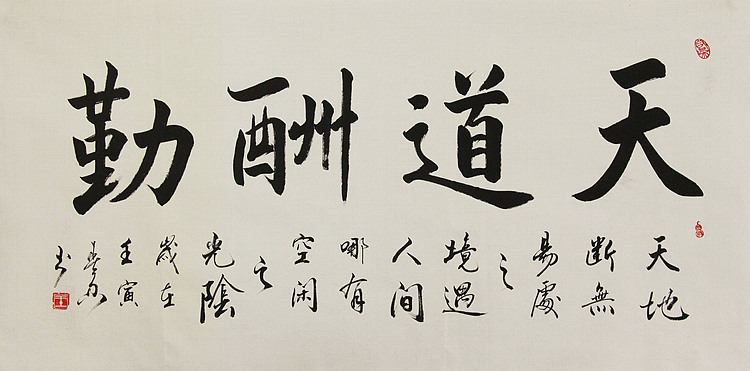 天道酬勤
天地
断無
易處
之
境遇
人间
哪有
空闲
之
光陰
歲在
壬寅
书